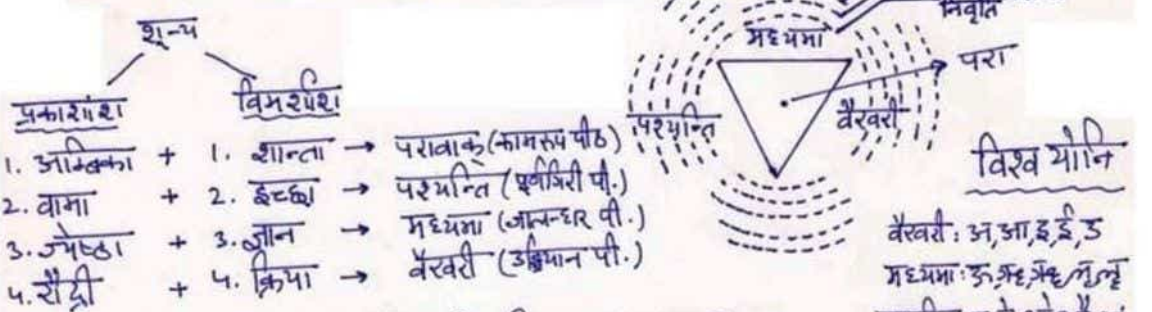 शून्य
प्रकाशांश विमर्शांश
1. अम्बिका + 1. शान्ता → परावाक् (कामरूप पीठ)
2. वामा + 2. इच्छा → पश्यन्ति (पूर्णगिरी पी.)
3. ज्येष्ठा + 3. ज्ञान → मध्यमा (जालन्धर पी.)
4. रौद्री + 4. क्रिया → वैखरी (उड्डियान पी.)
निवृति
मध्यमा
परा
पश्यन्ति
वैखरी
विश्व योनि
वैखरी: अ,आ,इ,ई,उ
मध्यमा: ऊ,ऋ,ॠ,लृ,लॄ